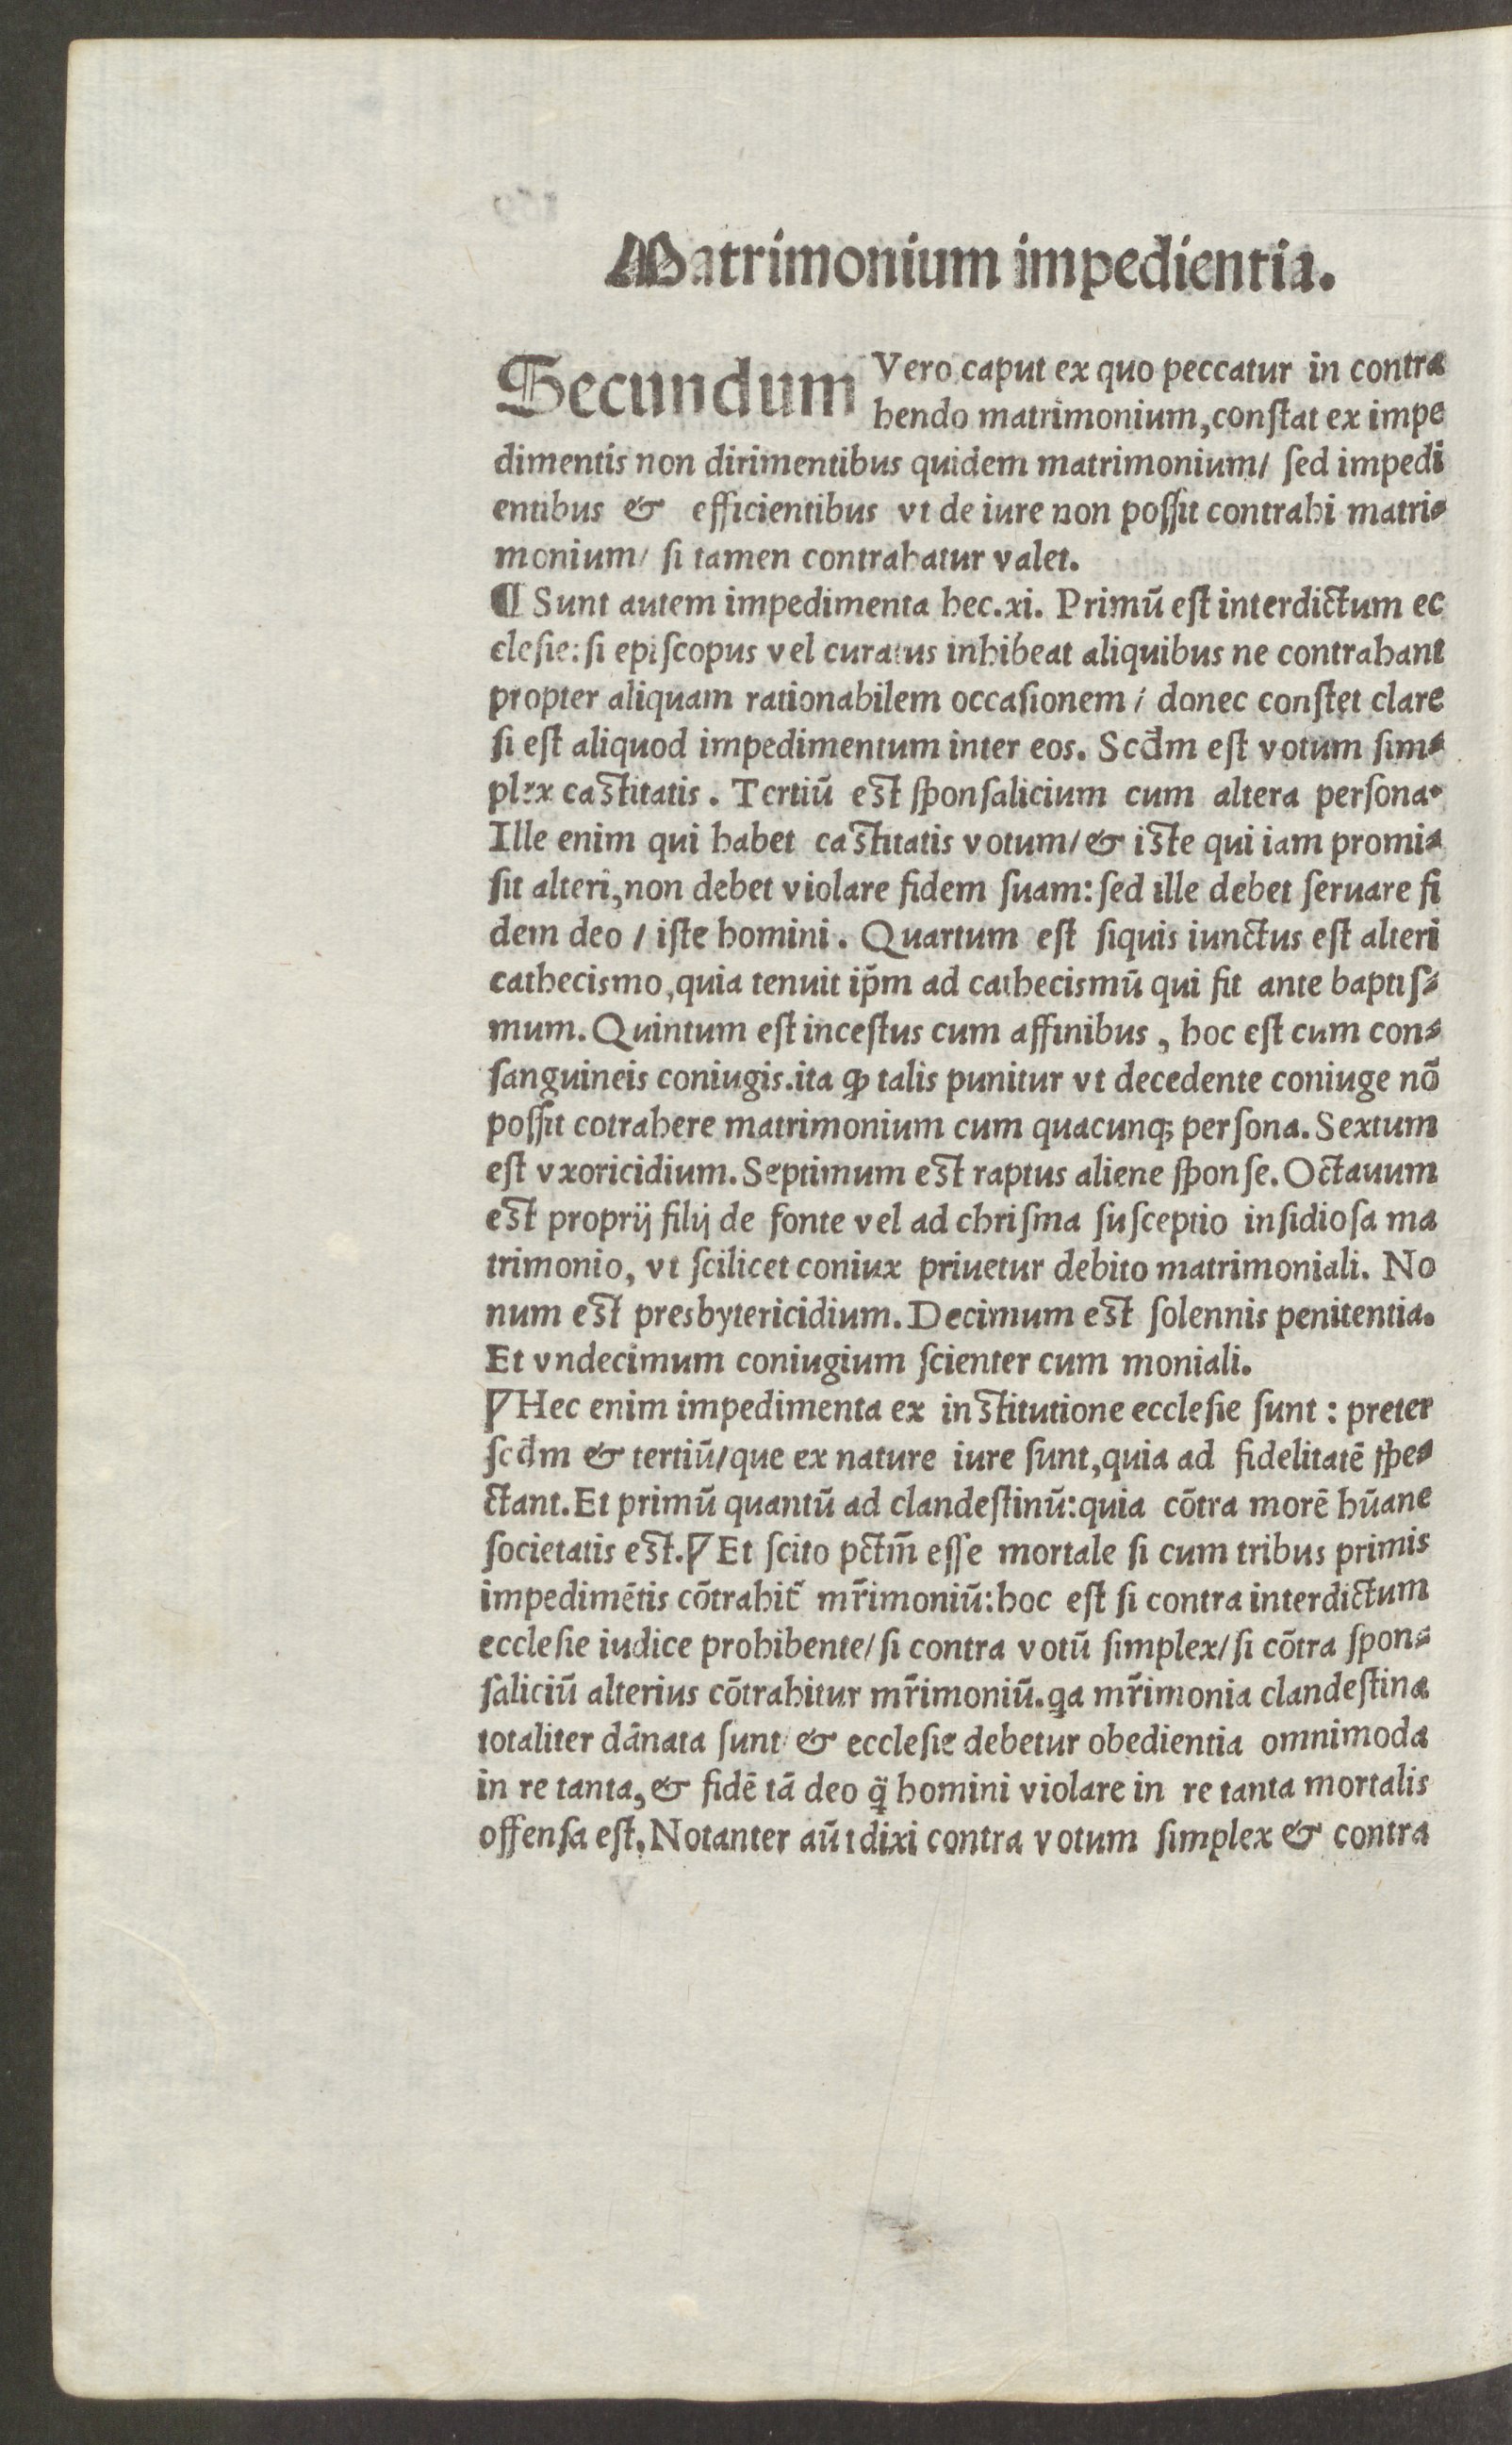 Matrimonium impedientia.
Secundum Vero caput ex quo peccatur in contra
hendo matrimonium, conſtat ex impe
dimentis non dirimentibus quidem matrimonium/ ſed impedi
entibus & efficientibus vt de iure non poſſit contrahi matri⸗
monium/ ſi tamen contrahatur valet.
¶ Sunt autem impedimenta hec.xi. Primū eſt interdictum ec
cleſie: ſi epiſcopus vel curatus inhibeat aliquibus ne contrahant
propter aliquam rationabilem occaſionem / donec conſtet clare
ſi eſt aliquod impedimentum inter eos. Scd̄m eſt votum ſim⸗
plex caſtitatis. Tertiū eſt ſponſalicium cum altera perſona.
Ille enim qui habet caſtitatis votum/ & iſte qui iam promi⸗
ſit alteri, non debet violare fidem ſuam: ſed ille debet ſeruare fi
dem deo / iſte homini. Quartum eſt ſiquis iunctus eſt alteri
cathecismo, quia tenuit ip̄m ad cathecismū qui fit ante baptiſ⸗
mum. Quintum eſt inceſtus cum affinibus, hoc eſt cum con⸗
ſanguineis coniugis. ita ꝙ talis punitur vt decedente coniuge nō
poſſit cotrahere matrimonium cum quacunqꝫ perſona. Sextum
eſt vxoricidium. Septimum eſt raptus aliene ſponſe. Octauum
eſt proprij filij de fonte vel ad chriſma ſuſceptio inſidioſa ma
trimonio, vt ſcilicet coniux priuetur debito matrimoniali. No
num eſt presbytericidium. Decimum eſt ſolennis penitentia.
Et vndecimum coniugium ſcienter cum moniali.
¶ Hec enim impedimenta ex inſtitutione eccleſie ſunt: preter
ſcd̄m & tertiū/ que ex nature iure ſunt, quia ad fidelitatē ſpe⸗
ctant. Et primū quantū ad clandeſtinū: quia cōtra morē hūane
ſocietatis eſt. ¶ Et ſcito pctm̄ eſſe mortale ſi cum tribus primis
impedimētis cōtrahit᷑ mr̄imoniū: hoc eſt ſi contra interdictum
eccleſie iudice prohibente/ ſi contra votū ſimplex/ ſi cōtra ſpon⸗
ſaliciū alterius cōtrahitur mr̄imoniū. qa mr̄imonia clandeſtina
totaliter dānata ſunt/ & eccleſie debetur obedientia omnimoda
in re tanta, & fidē tā deo q̄ homini violare in re tanta mortalis
offenſa eſt. Notanter aūt dixi contra votum ſimplex & contra